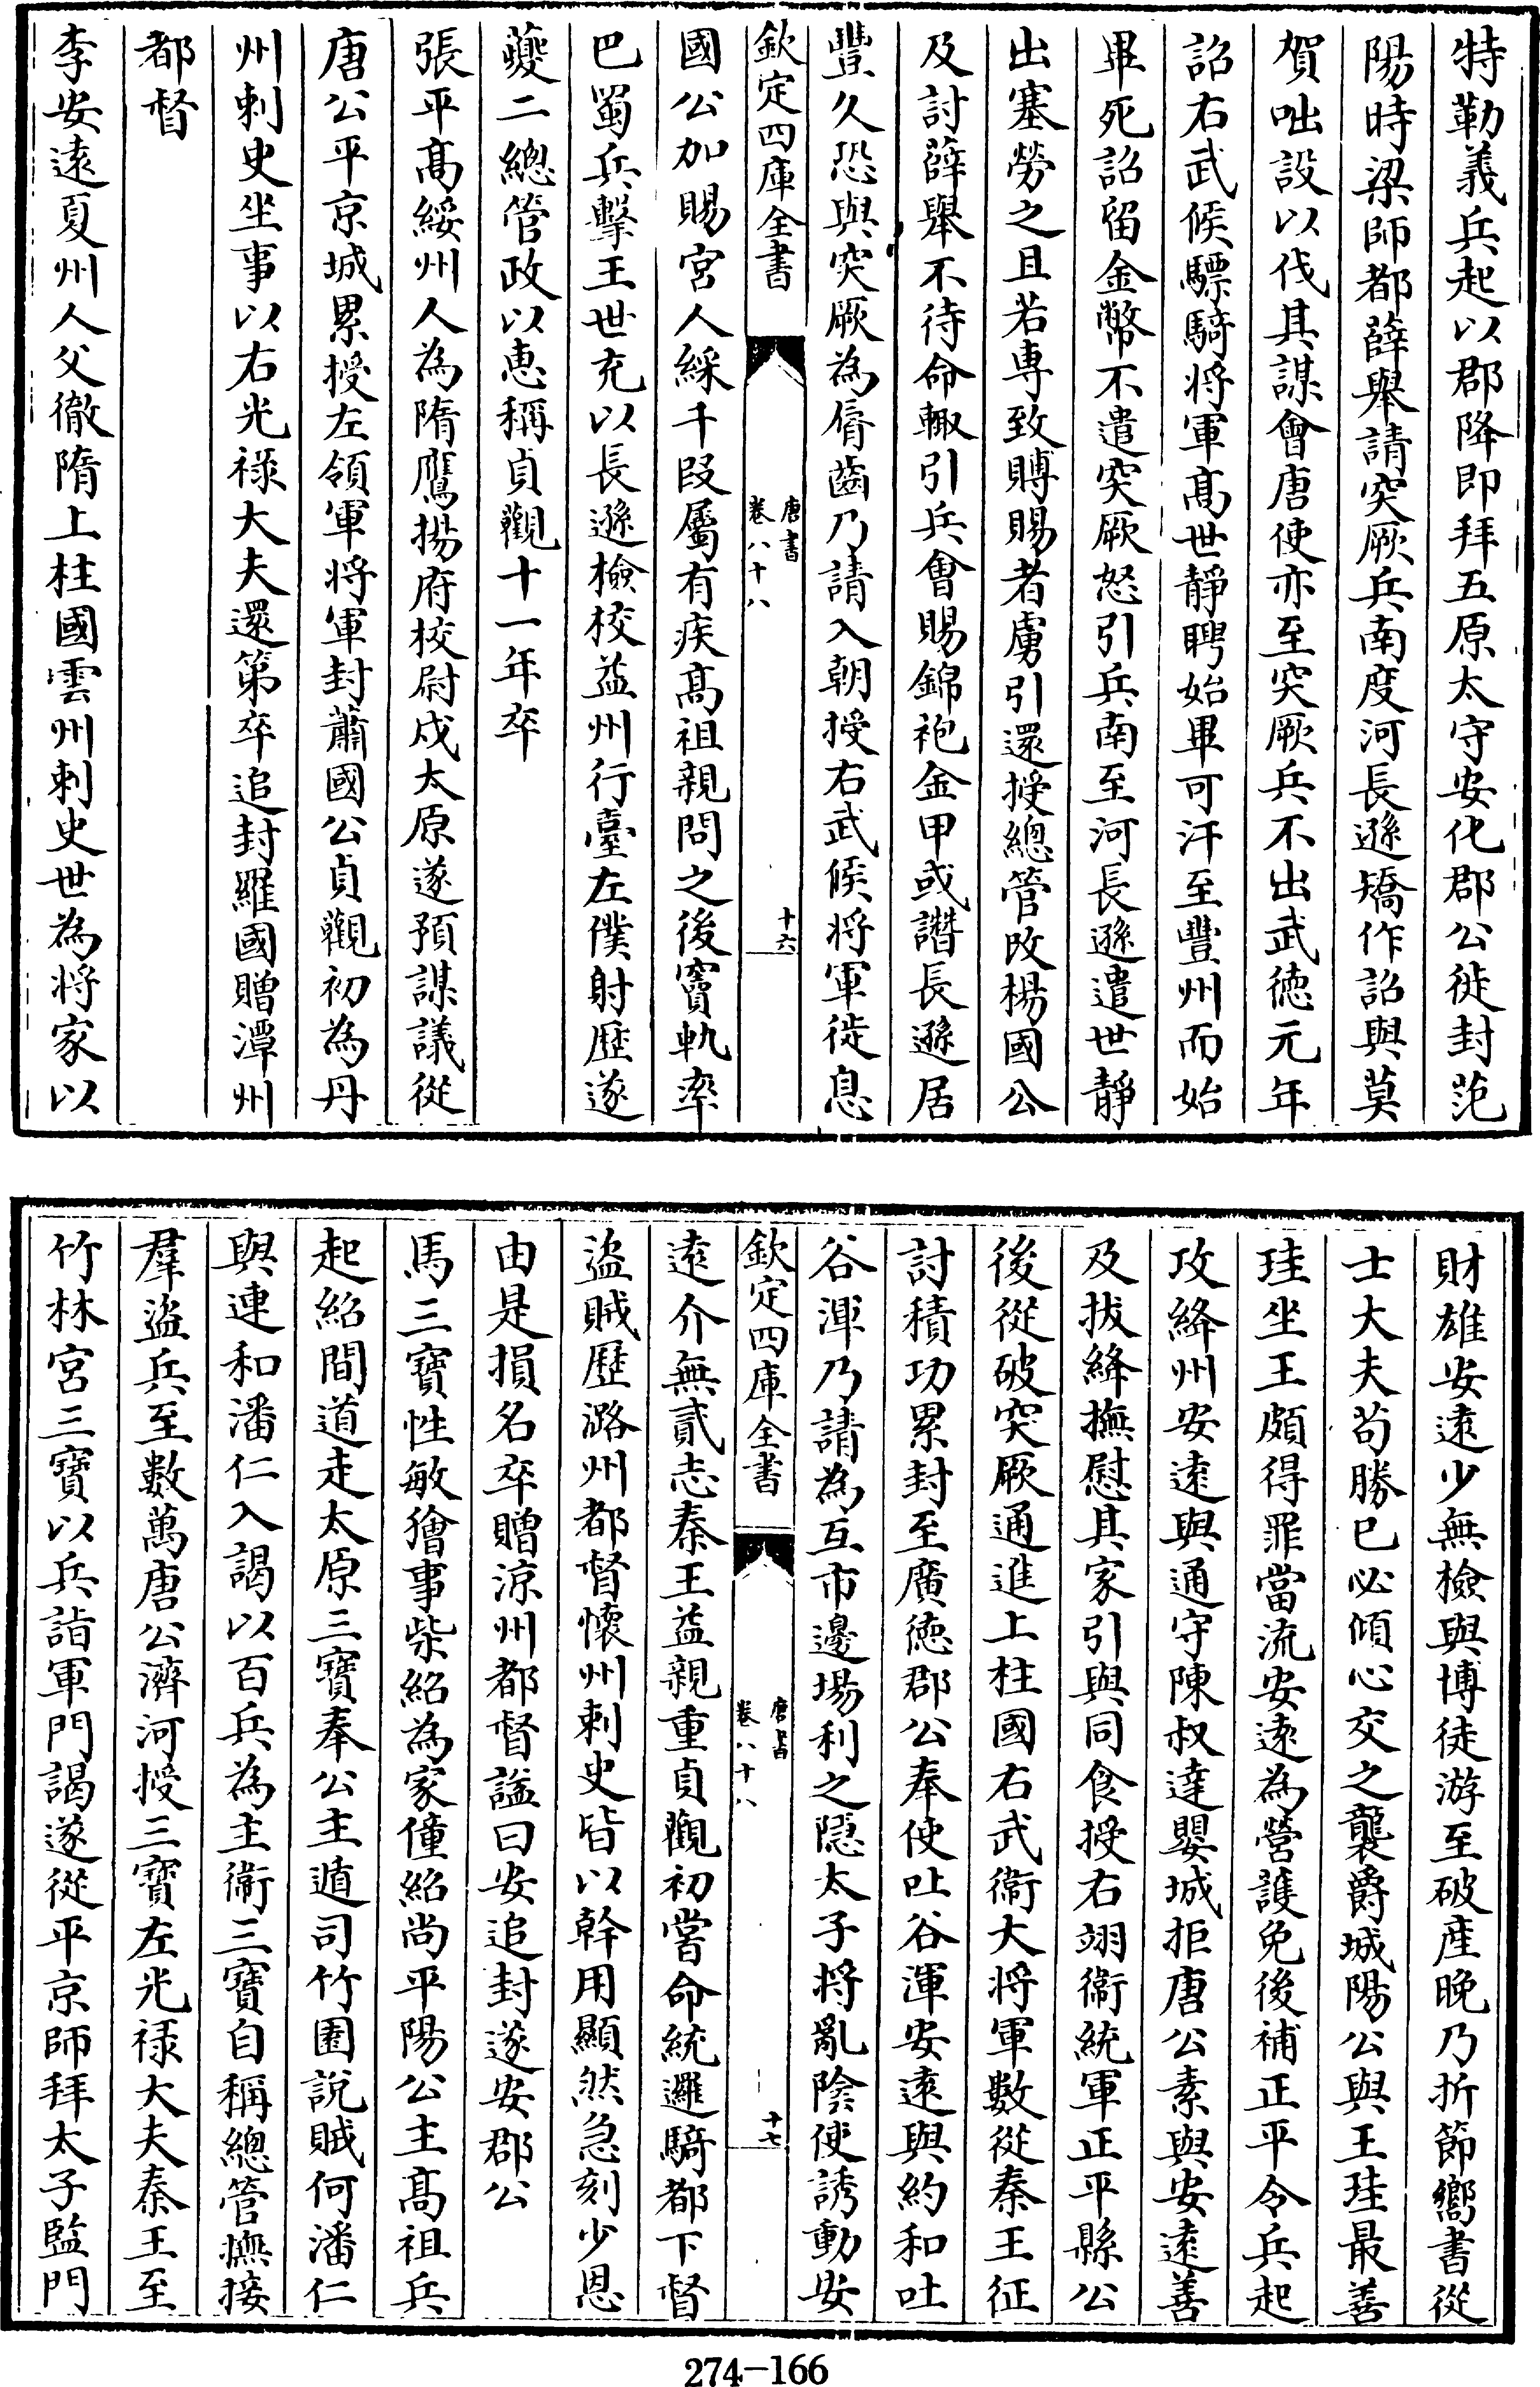 特勒義兵起以郡降即拜五原太守安化郡公徙封范
陽時梁師都薛舉請突厥兵南度河長遜矯作詔與莫
賀咄設以伐其謀會唐使亦至突厥兵不出武徳元年
詔右武候驃騎将軍髙世靜聘始畢可汗至豐州而始
畢死詔留金幣不遣突厥怒引兵南至河長遜遣世靜
出塞勞之且若専致賻賜者虜引還授總管改楊國公
及討薛舉不待命輙引兵會賜錦袍金甲或譖長遜居
豐久恐與突厥為脣齒乃請入朝授右武候将軍徙息
欽定四庫全書
唐書
卷八十八
十六
國公加賜宮人綵千段屬有疾髙祖親問之後竇軌率
巴蜀兵擊王世充以長遜檢校益州行臺左僕射歴遂
夔二總管政以惠稱貞觀十一年卒
張平髙綏州人為隋鷹揚府校尉戍太原遂預謀議從
唐公平京城累授左領軍将軍封蕭國公貞觀初為丹
州刺史坐事以右光禄大夫還第卒追封羅國贈潭州
都督
李安逺夏州人父徹隋上柱國雲州刺史世為将家以
財雄安逺少無檢與博徒游至破産晩乃折節嚮書從
士大夫苟勝已必傾心交之襲爵城陽公與王珪最善
珪坐王頗得罪當流安逺為營護免後補正平令兵起
攻絳州安逺與通守陳叔達嬰城拒唐公素與安逺善
及拔絳撫慰其家引與同食授右翊衞統軍正平縣公
後從破突厥通進上柱國右武衞大将軍數從秦王征
討積功累封至廣徳郡公奉使吐谷渾安逺與約和吐
谷渾乃請為互市邊場利之隠太子将亂陰使誘動安
欽定四庫全書
唐書
卷八十八
十七
逺介無貳志秦王益親重貞觀初嘗命統邏騎都下督
盜賊歴潞州都督懷州刺史皆以幹用顯然急刻少恩
由是損名卒贈涼州都督謚曰安追封遂安郡公
馬三寶性敏獪事柴紹為家僮紹尚平陽公主髙祖兵
起紹間道走太原三寶奉公主遁司竹園說賊何潘仁
與連和潘仁入謁以百兵為主衞三寶自稱總管撫接
羣盜兵至數萬唐公濟河授三寶左光禄大夫秦王至
竹林宮三寶以兵詣軍門謁遂從平京師拜太子監門
274-166